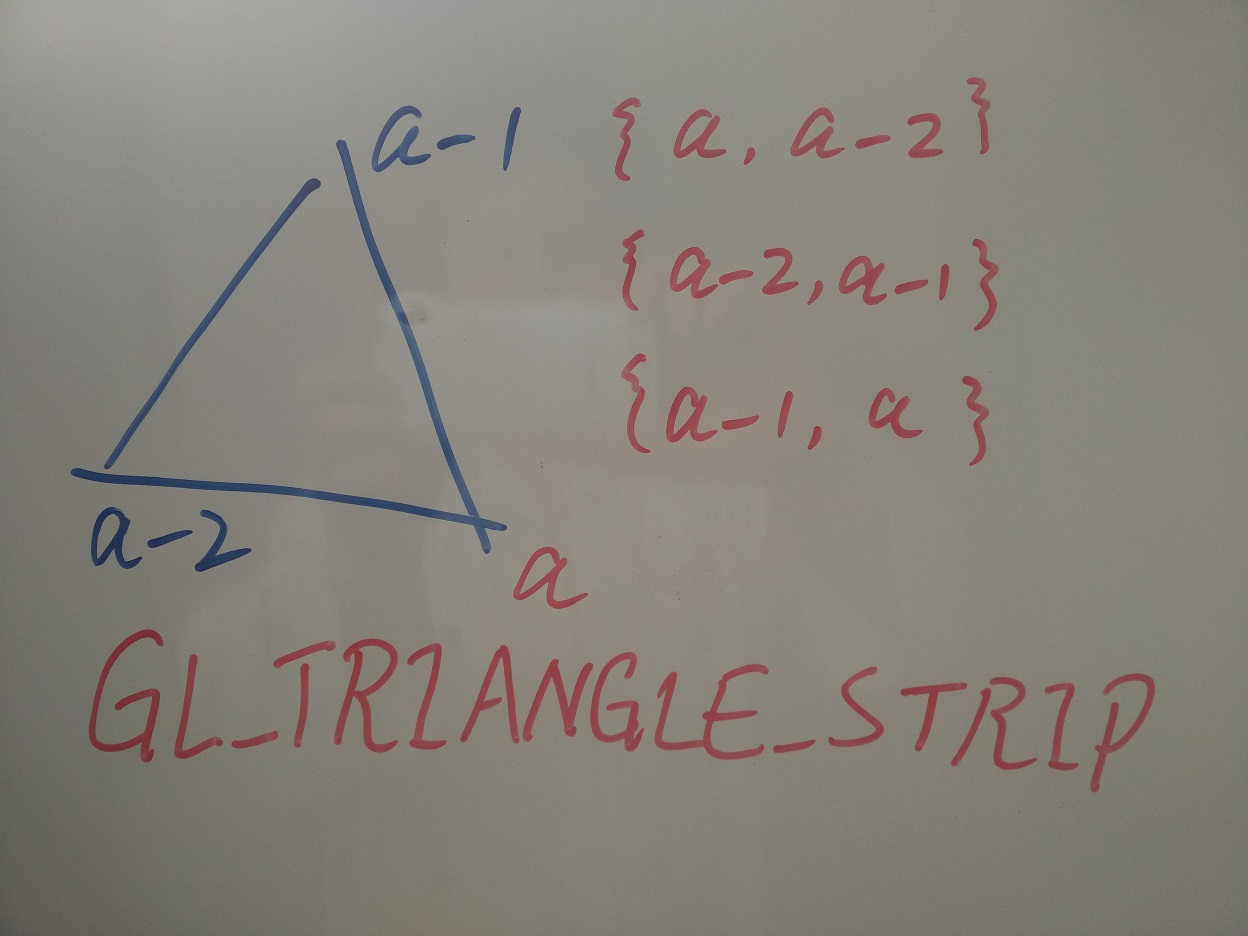 a-1 { a, a-2}
{ a-2, a-1}
{a-1, a }
a-2
a
GL_TRIANGLE_STRIP